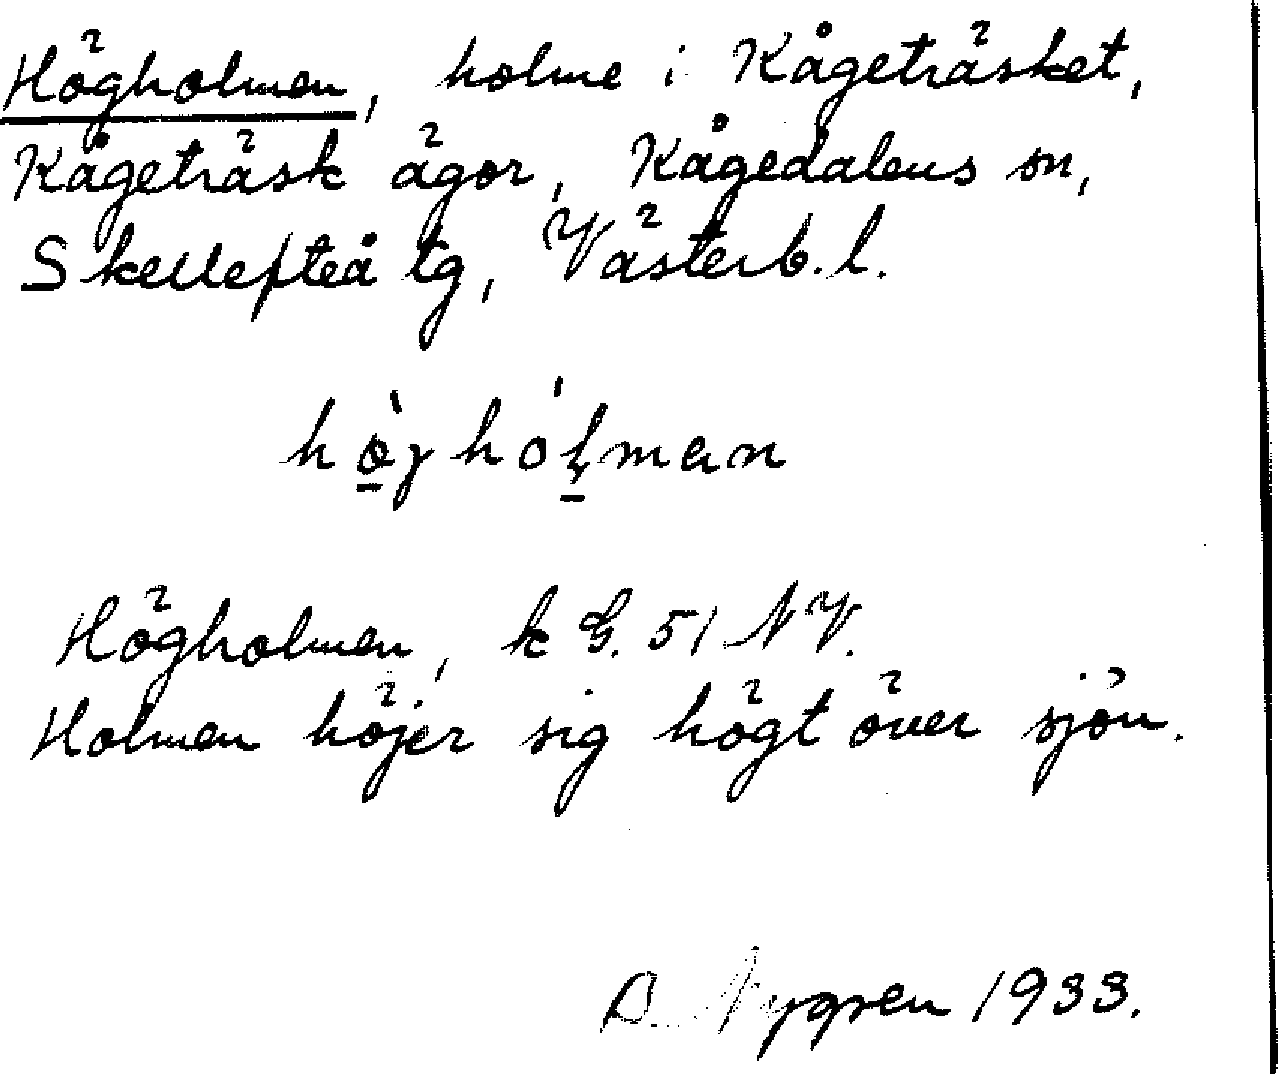 Högholmen, holme i Kågeträsket,
Kågeträsk ägor, Kågedalens sn,
Skellefteå tg, Västerb. l.
hø̠̀ghól̠man
Högholmen, k G. 51 NV.
Holmen höjer sig högt över sjön.
D. Nygren 1933.